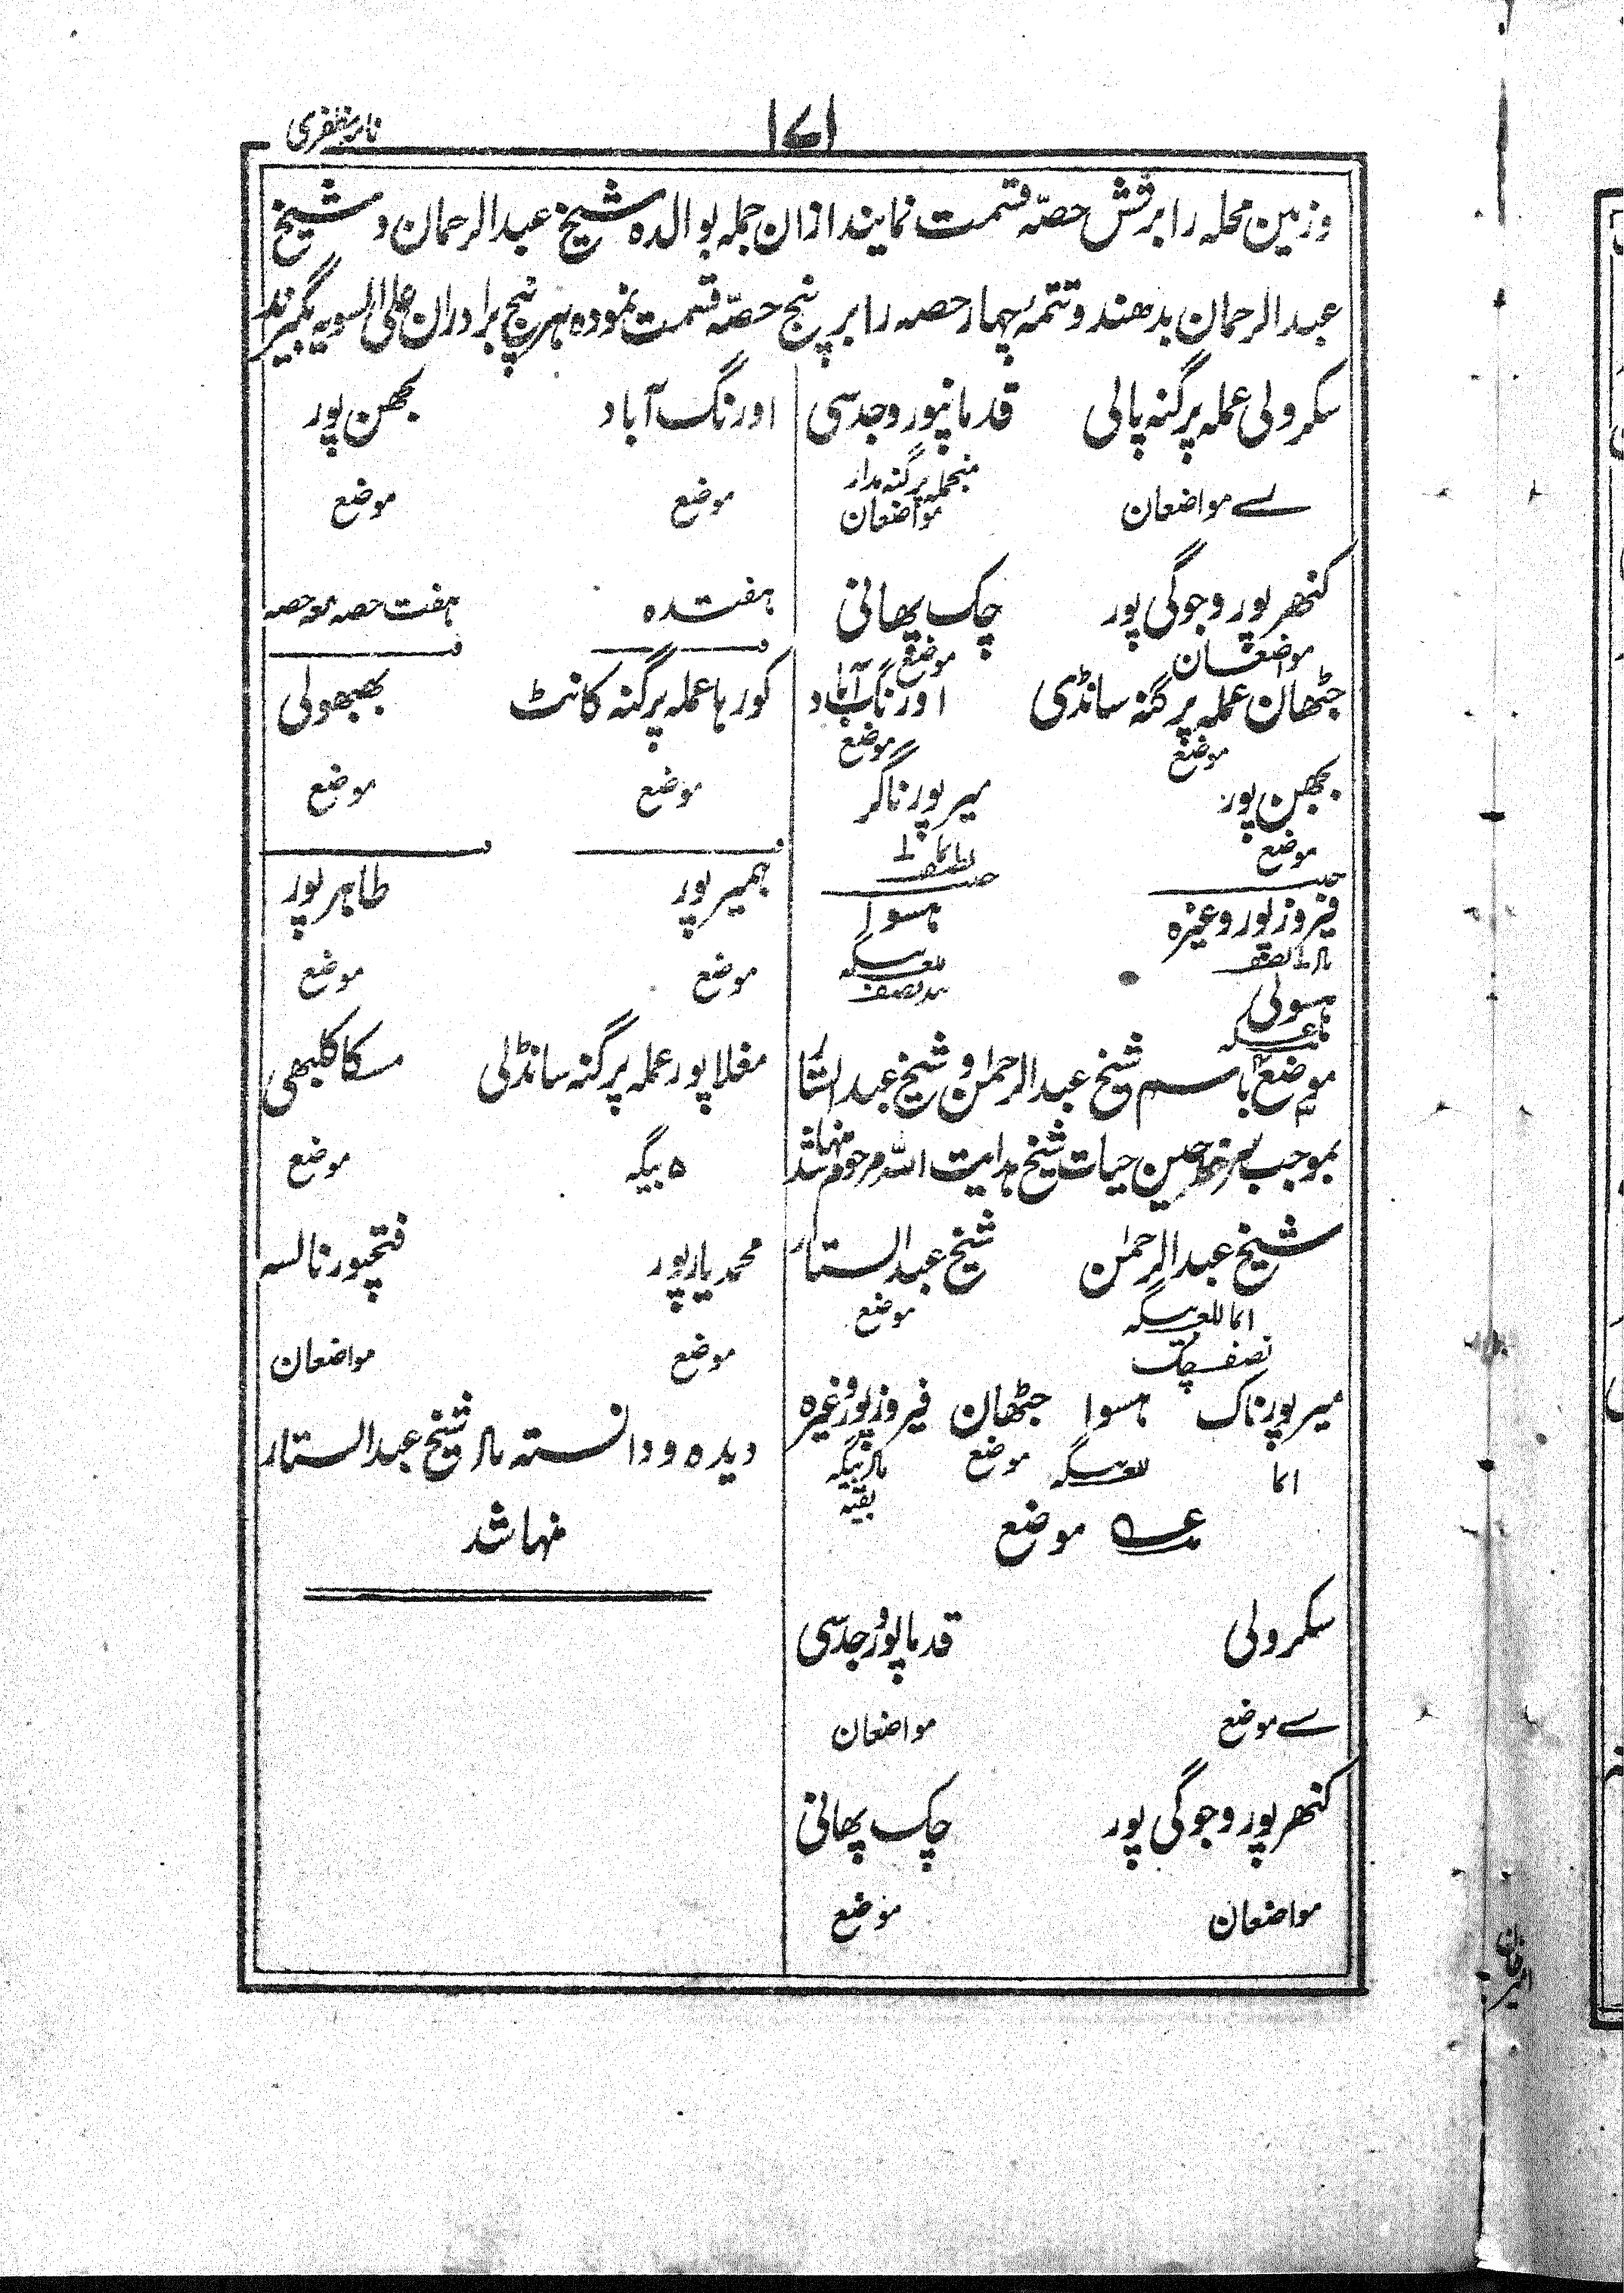 ۱۷۱
وزمین محله را برشش حصّه قسمت نمایند ازان جمله بوالده شیخ عبدالرحمان و شیخ
عبدالرحمان بدهند و تتمهٔ چهار حصه را بر پنج حصّه قسمت نموده هر پنج برادران علی السویه بگیرند
سکرولی عمله پرگنه پالی قدمانپور وجدسی
مواضعان منجمله پرگنه مدار
مواضعان
کنهرپور وجوگی پور چک پهانی
مواضعان موضع
جٹهان عمله پرگنه سانڈی اورنگ آباد
موضع موضع
بجهن پور میرپور ناگر
موضع
فیروزپور وغیره ہسوا
ہسولی
موضع باسم شیخ عبدالرحمٰن و شیخ عبدالستار
بموجب حین حیات شیخ ہدایت اللہ مرحوم منہا شد
شیخ عبدالرحمٰن شیخ عبدالستار
موضع
نصف چک
میرپور ناک ہسوا جٹهان فیروزپور وغیره
موضع
بقیه
موضع
سکرولی قدماپور جدسی
موضع مواضعان
کنهرپور وجوگی پور چک پهانی
مواضعان موضع
اورنگ آباد بجهن پور
موضع موضع
ہفتده ہفت حصه
کورہا عمله پرگنه کانٹ بهبهولی
موضع موضع
ہمیرپور طاہرپور
موضع موضع
مغلاپور عمله پرگنه سانڈلی سکاکلبهی
۵ بیگہ موضع
محمدیارپور فتحپور نالسه
موضع مواضعان
دیده و دانسته شیخ عبدالستار
منہا شد